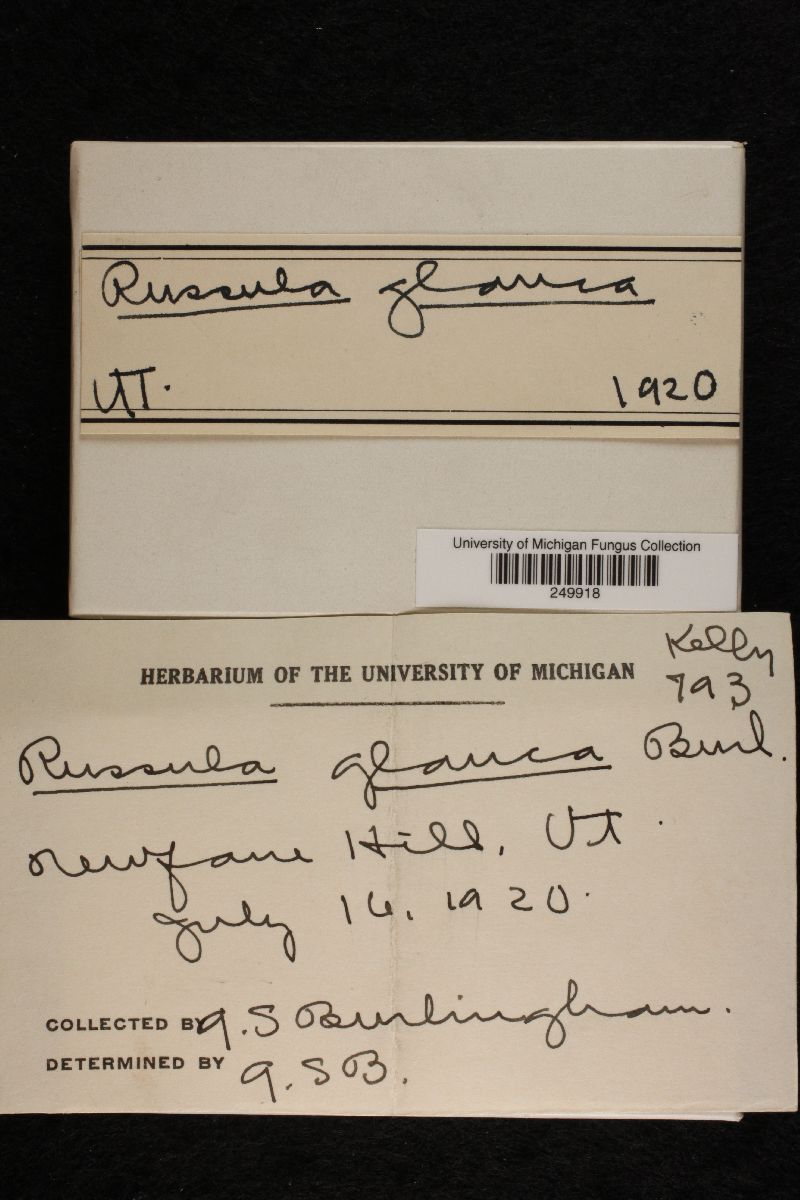 Russula glauca
VT. 1920
University of Michigan Fungus Collection
249918
Kelly
793
HERBARIUM OF THE UNIVERSITY OF MICHIGAN
Russula glauca Burl.
Newfane Hill, Vt.
July 16, 1920.
COLLECTED BY G.S Burlingham.
DETERMINED BY G.S B.